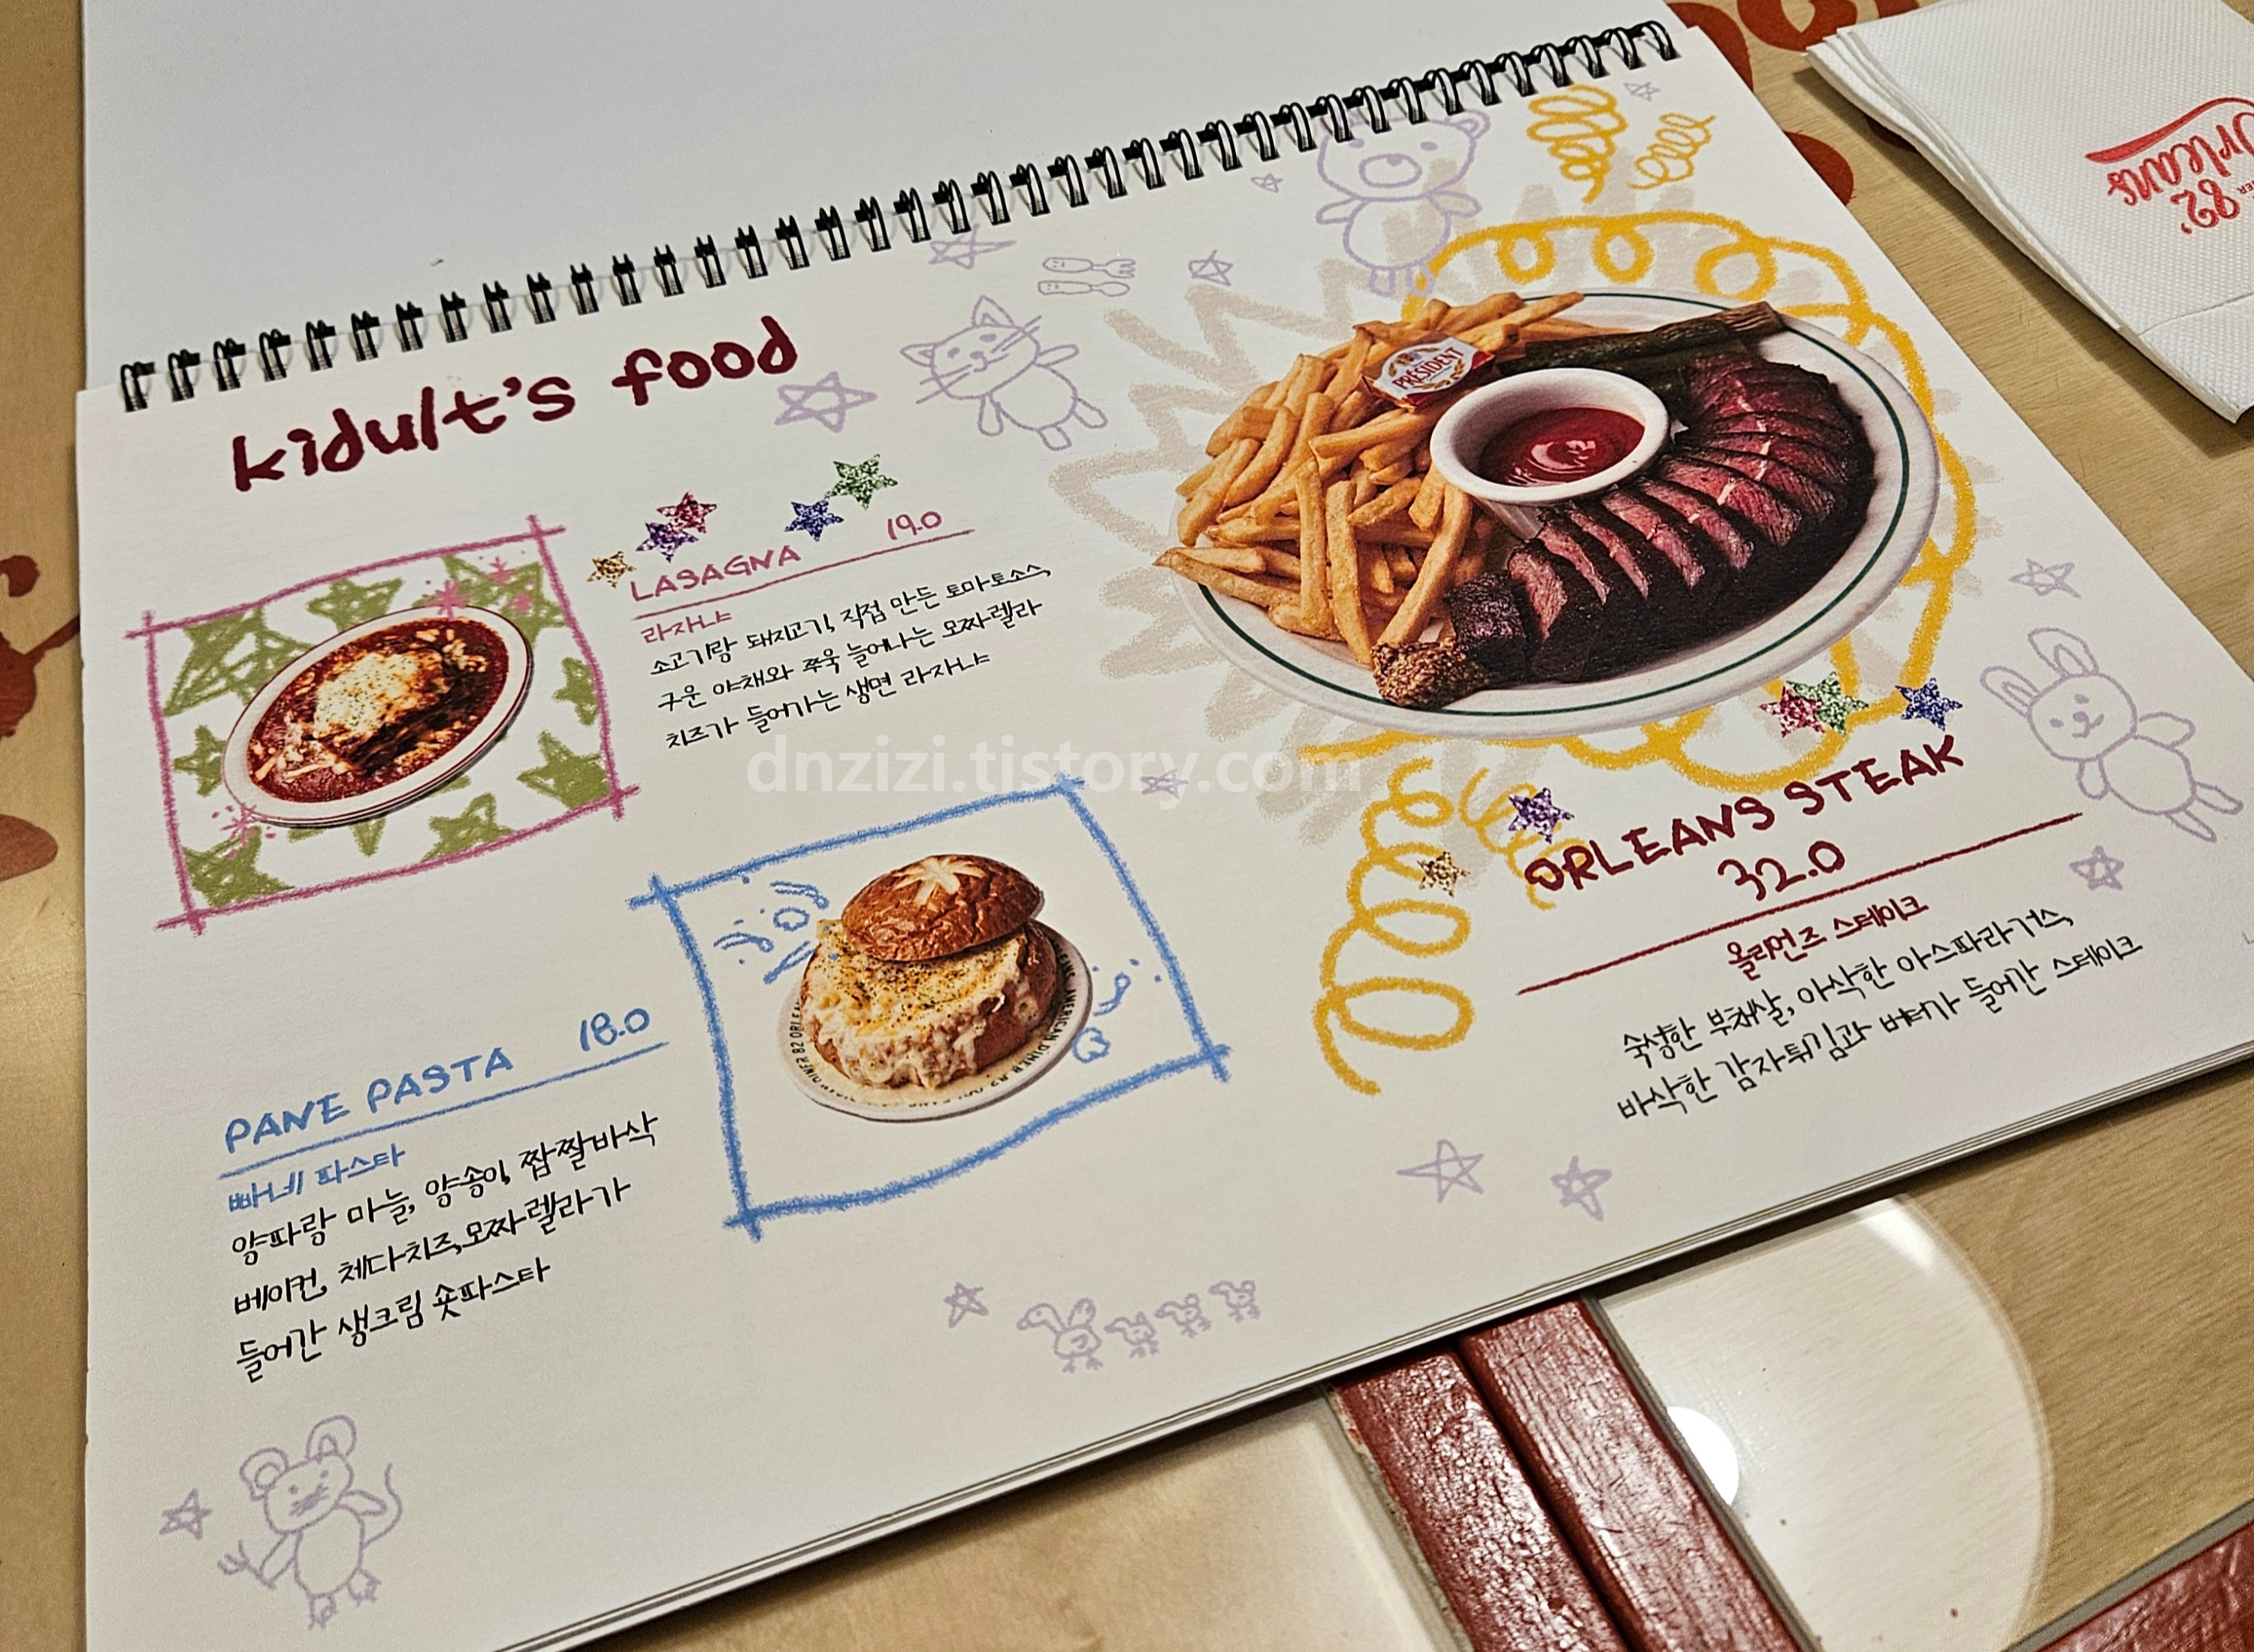 kidult's food
LASAGNA 19.0
라자냐
소고기랑 돼지고기, 직접 만든 토마토소스,
구운 야채와 쭈욱 늘어나는 모짜렐라
치즈가 들어가는 생면 라자냐
PANE PASTA 18.0
빠네 파스타
양파랑 마늘, 양송이, 짭짤바삭
베이컨, 체다치즈, 모짜렐라가
들어간 생크림 숏파스타
PRÉSIDENT
ORLEANS STEAK
32.0
올리언즈 스테이크
숙성한 부채살, 아삭한 아스파라거스,
바삭한 감자튀김과 버터가 들어간 스테이크
AMERICAN DINER 82 ORLEANS
82'
Orleans
dnzizi.tistory.com